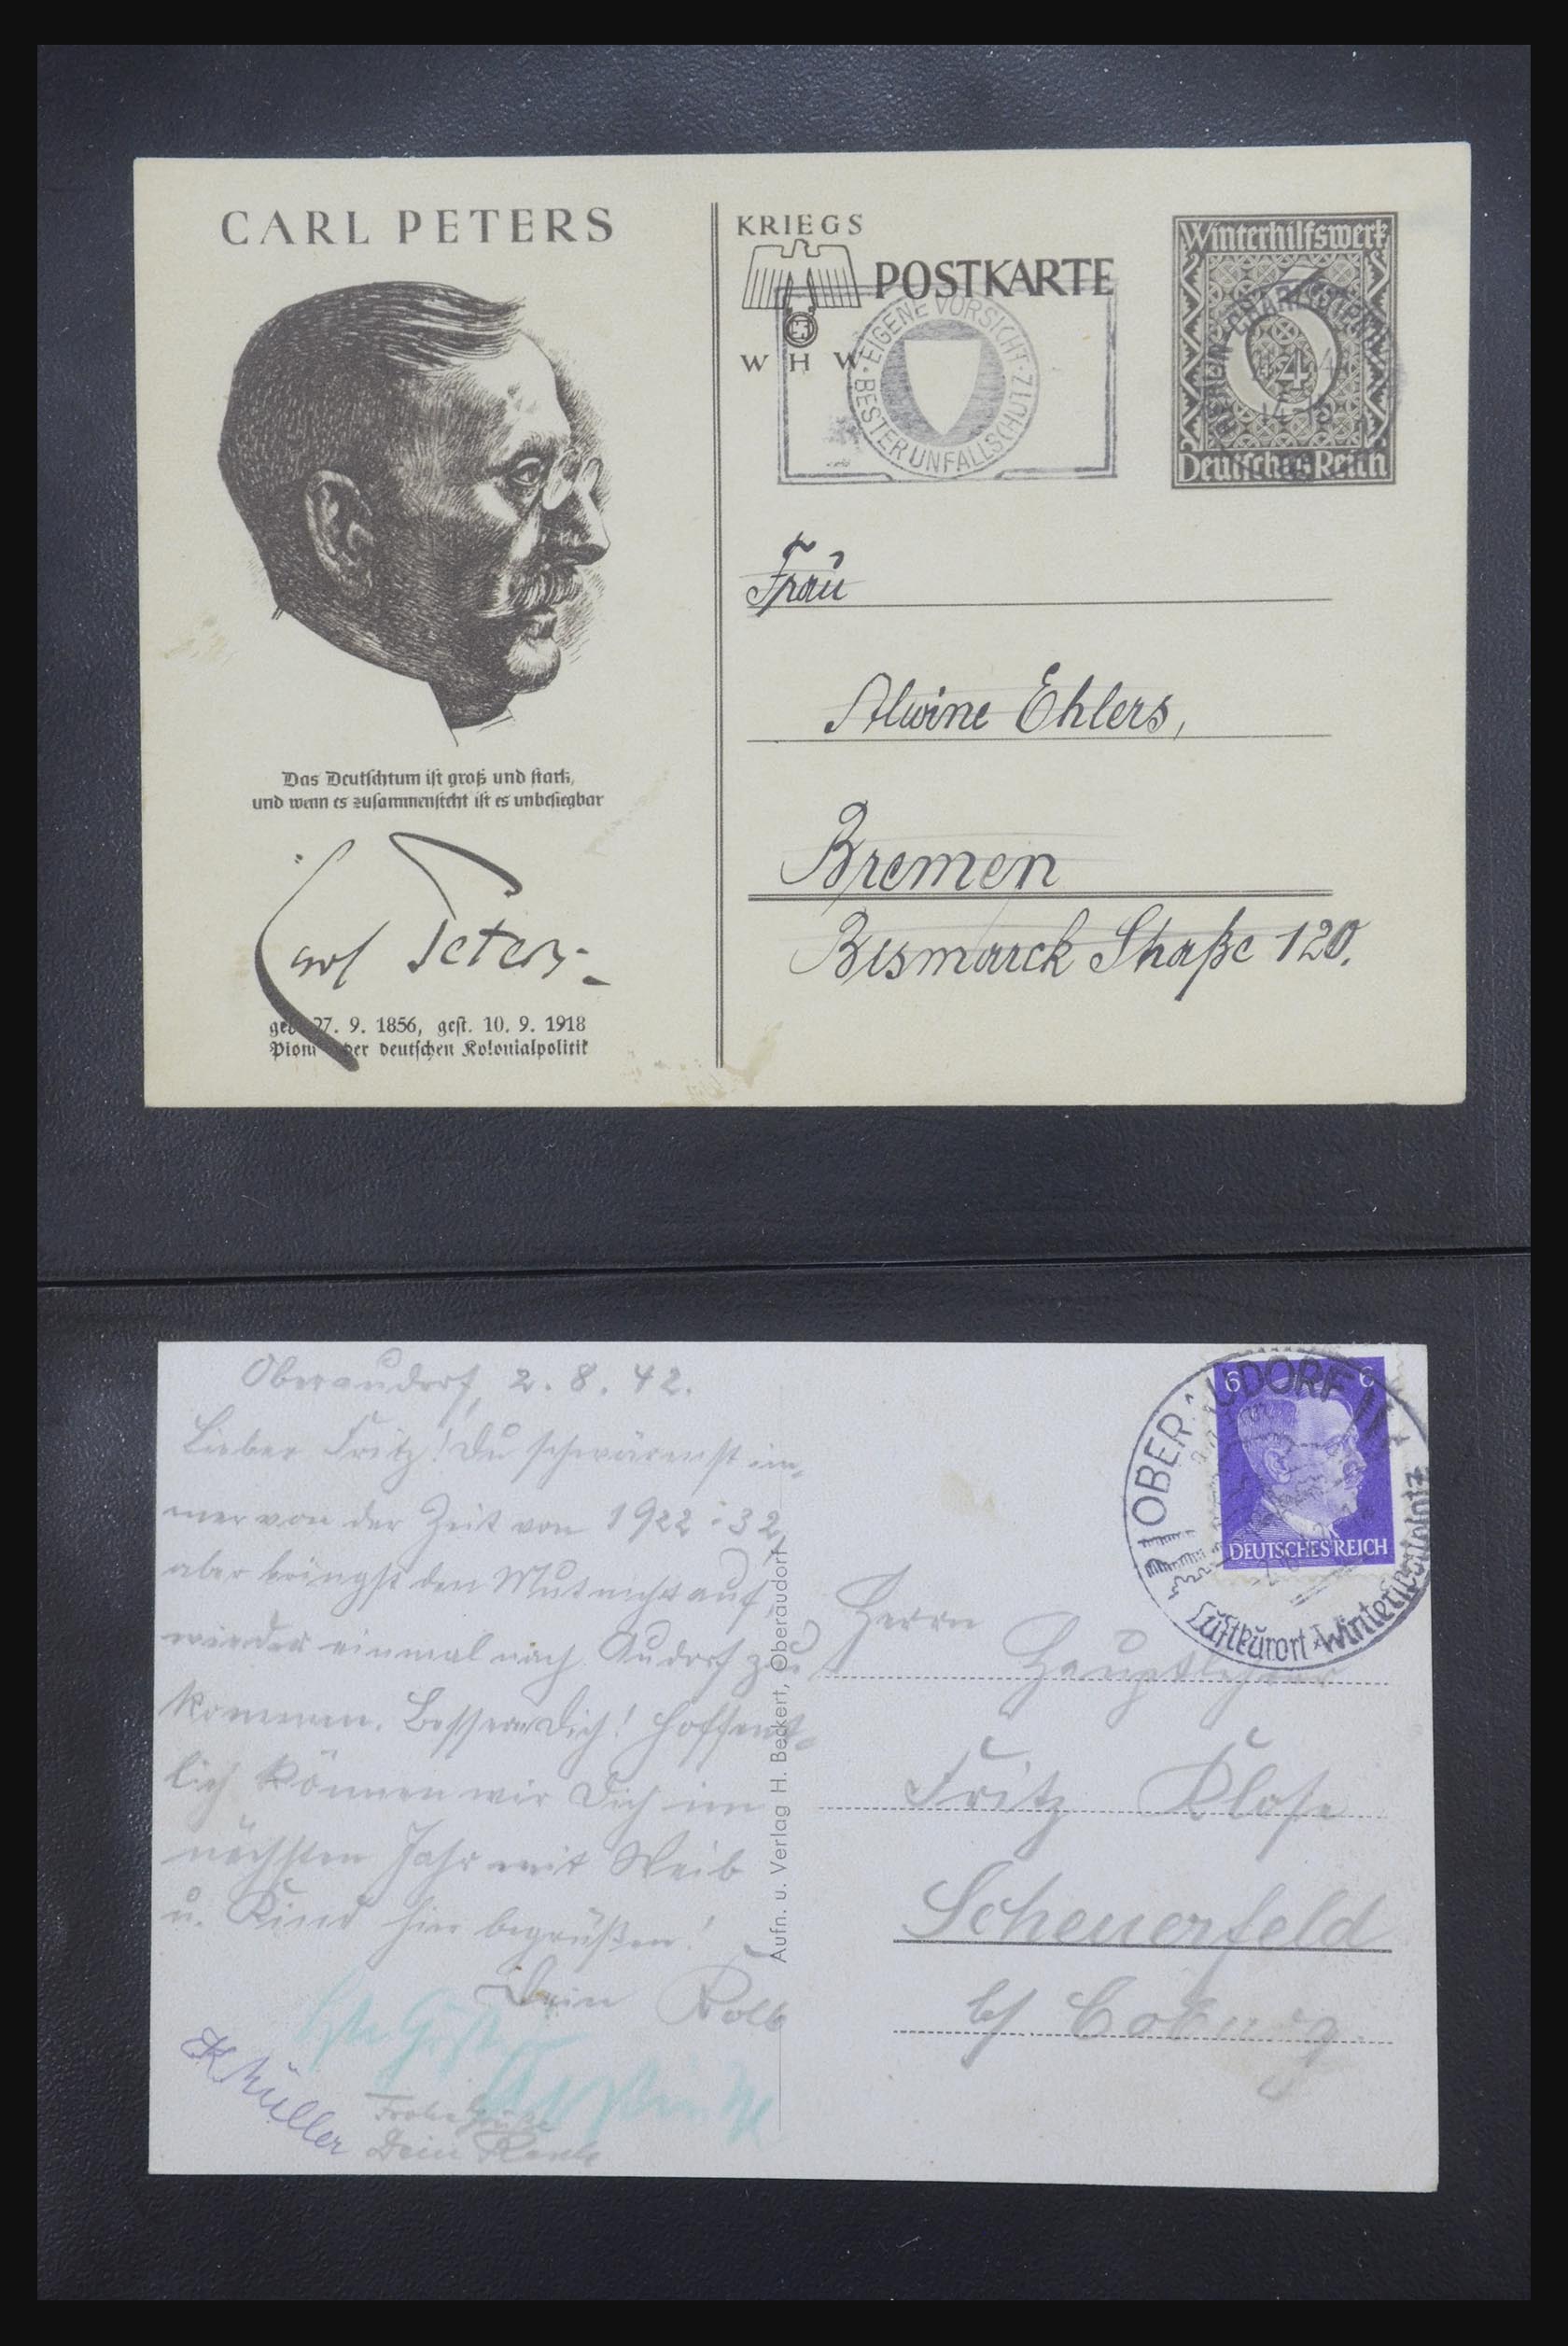 CARL PETERS
Das Deutschtum ist groß und stark,
und wenn es zusammensteht ist es unbesiegbar
Carl Peters
geb. 27. 9. 1856, gest. 10. 9. 1918
Pionier der deutschen Kolonialpolitik
KRIEGS
WHW
POSTKARTE
EIGENE VORSICHT · BESTER UNFALLSCHUTZ
Winterhilfswerk
6
4
Deutsches Reich
BERLIN-CHARLOTTENBURG
Frau
Alwine Ehlers,
Bremen
Bismarck Straße 120.
Oberaudorf, 2. 8. 42.
Lieber Fritz! Du schwärmst im-
mer von der Zeit von 1922-32,
aber bringst den Mut nicht auf,
wieder einmal nach Audorf zu
kommen. Bessere Dich! Hoffent-
lich können wir Dich im
nächsten Jahr mit Weib
u. Kind hier begrüßen!
Dein Kolb
K Müller
Frohe Grüße
Dein
Aufn. u. Verlag H. Beckert, Oberaudorf
6 6
DEUTSCHES REICH
OBERAUDORF
Luftkurort Wintersportplatz
Herrn
Hauptlehrer
Fritz Klose
Scheuerfeld
b/ Coburg.